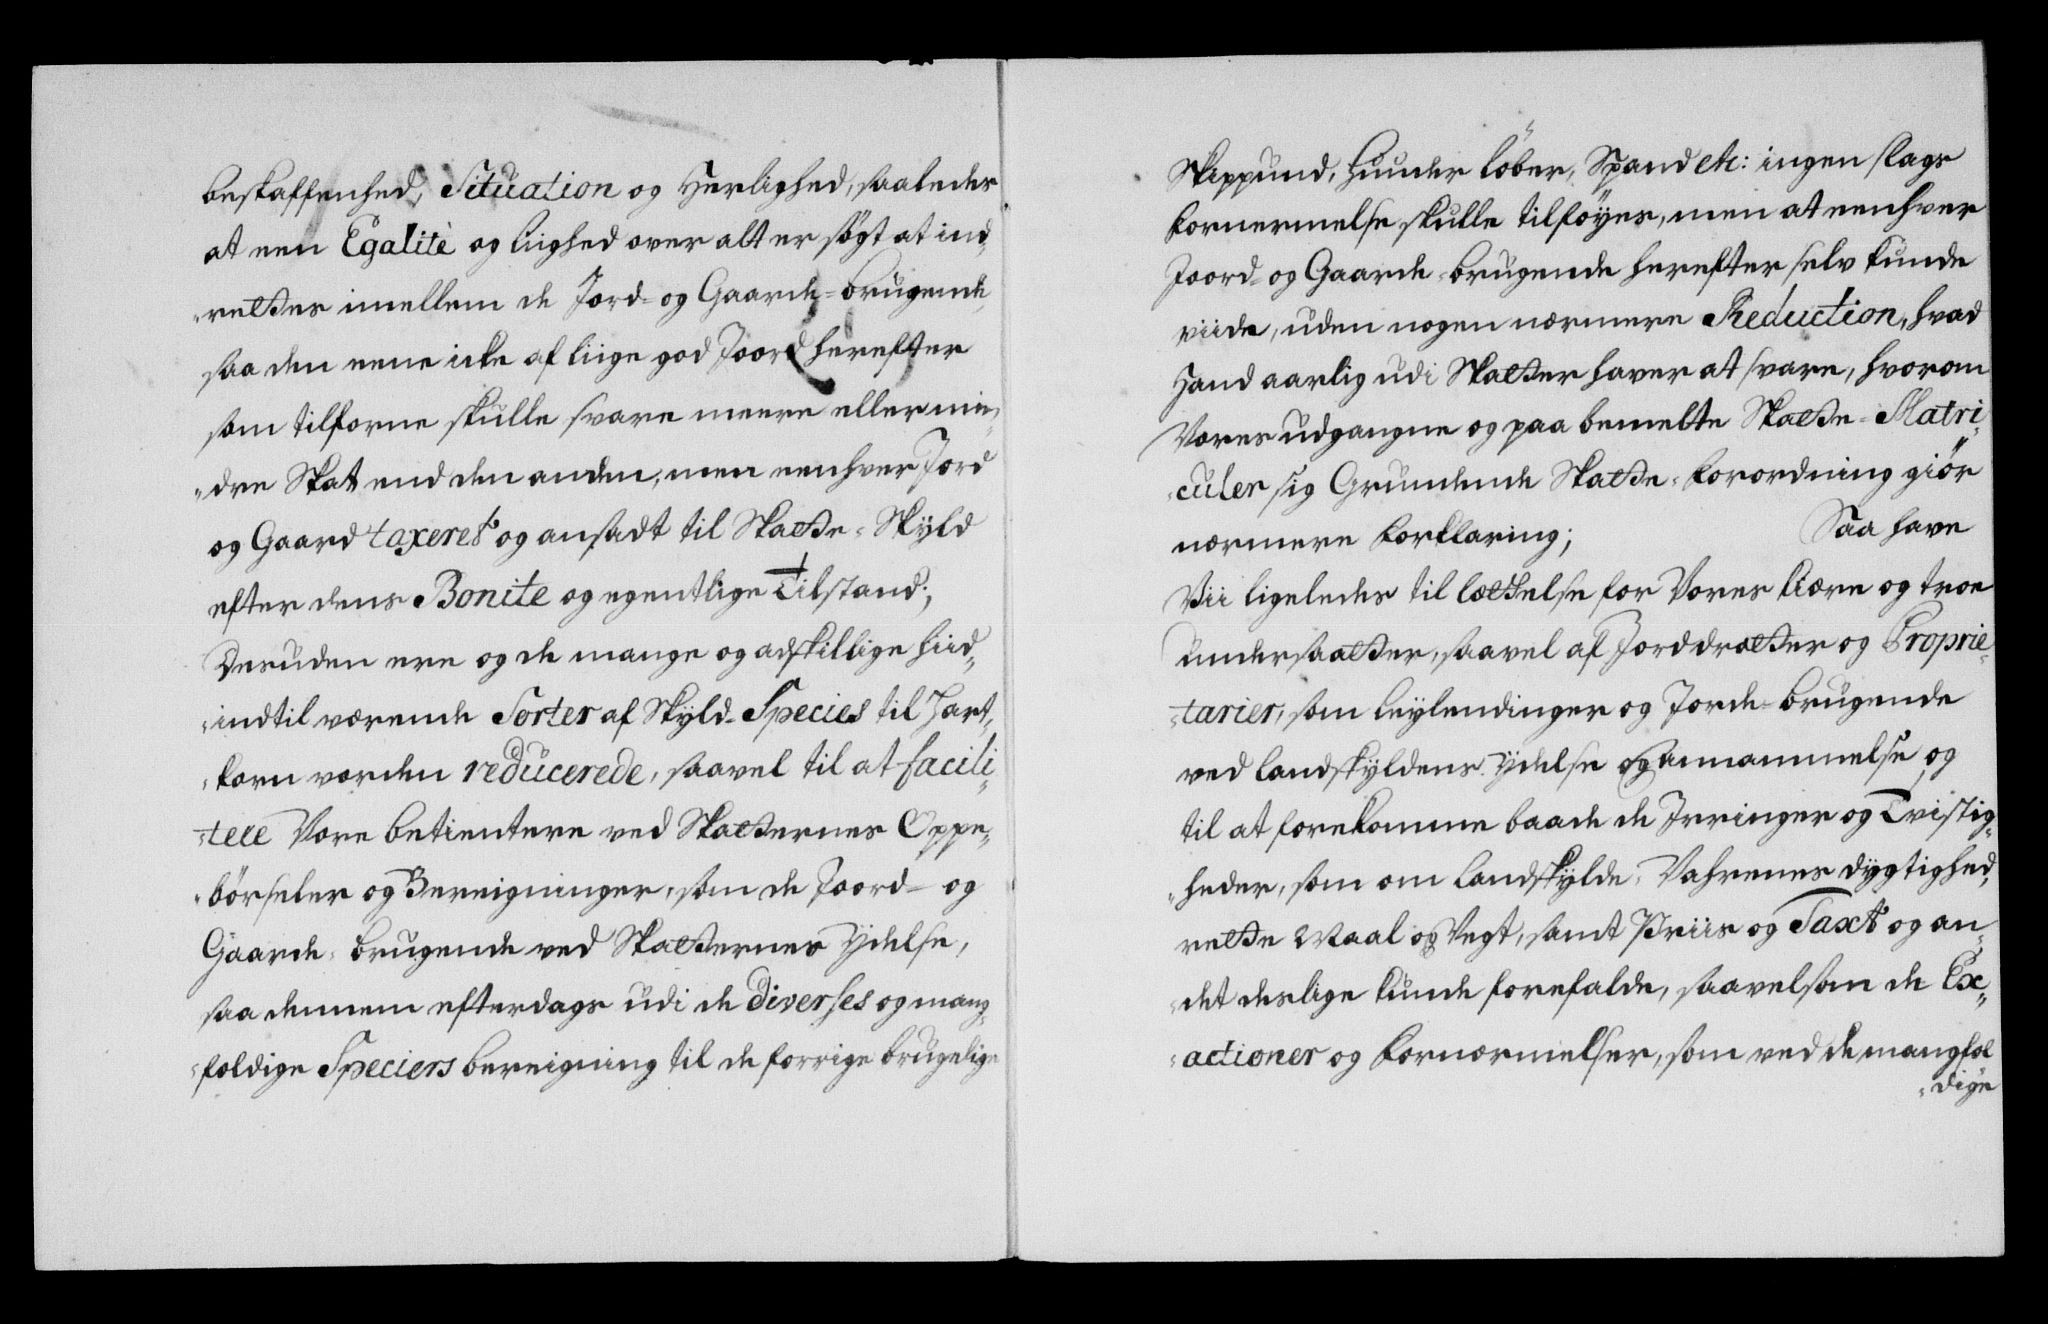 beskaffenhed, Situation og Herlighed, saaledes
at een Egalitè og liighed over alt er søgt at ind„
„rettes imellem de Jord- og Gaarde-brugende,
saa den eene icke af liige god Joord herefter
som tilforne skulle svare meere eller min„
„dre Skat end den anden, men eenhver Jord
og Gaard taxeret og ansadt til Skatte-Skyld
efter dens Bonite og egentlige Tilstand;
Desuden ere og de mange og adskillige hiid„
„indtil værende Sorter af Skyld-Species til Hart„
„korn vorden reducerede, saavel til at facili„
„tere Vore betientere ved Skatternes Oppe„
„børseler og Bereigninger, som de Joord- og
Gaarde-brugende ved Skatternes Ydelse,
saa dennem efterdags udi de diverses og mang„
„foldige Speciers bereigning til de forrige brugelige
Skippund, Huuder løber, Spand etc: ingen slags
fornermelse skulle tilføyes, men at eenhver
Joord- og Gaarde-brugende herefter selv kunde
viide, uden nogen nærmere Reduction, hvad
Hand aarlig udi Skatter haver at svare, hvorom
Vores udgangne og paa bemelte Skatte-Matri„
„culer sig Grundende Skatte-forordning giør
nærmere forklaring; Saa have
Vii ligeledes til lættelse for Vores kiære og troe
undersaatter, saavel af Jorddrotter og Proprie„
„tarier, som leylendinger og Jorde-brugende
ved landskyldens Ydelse og annammelse og
til at forekomme baade de Irringer og Tvistig„
„heder, som om landskylde-Vahrenes dygtighed,
rette Maal og Vegt, samt Priis og Taxt og an„
„det deslige kunde forefalde, saavelsom de Ex„
„actioner og fornærmelser, som ved de mangfol
„dige